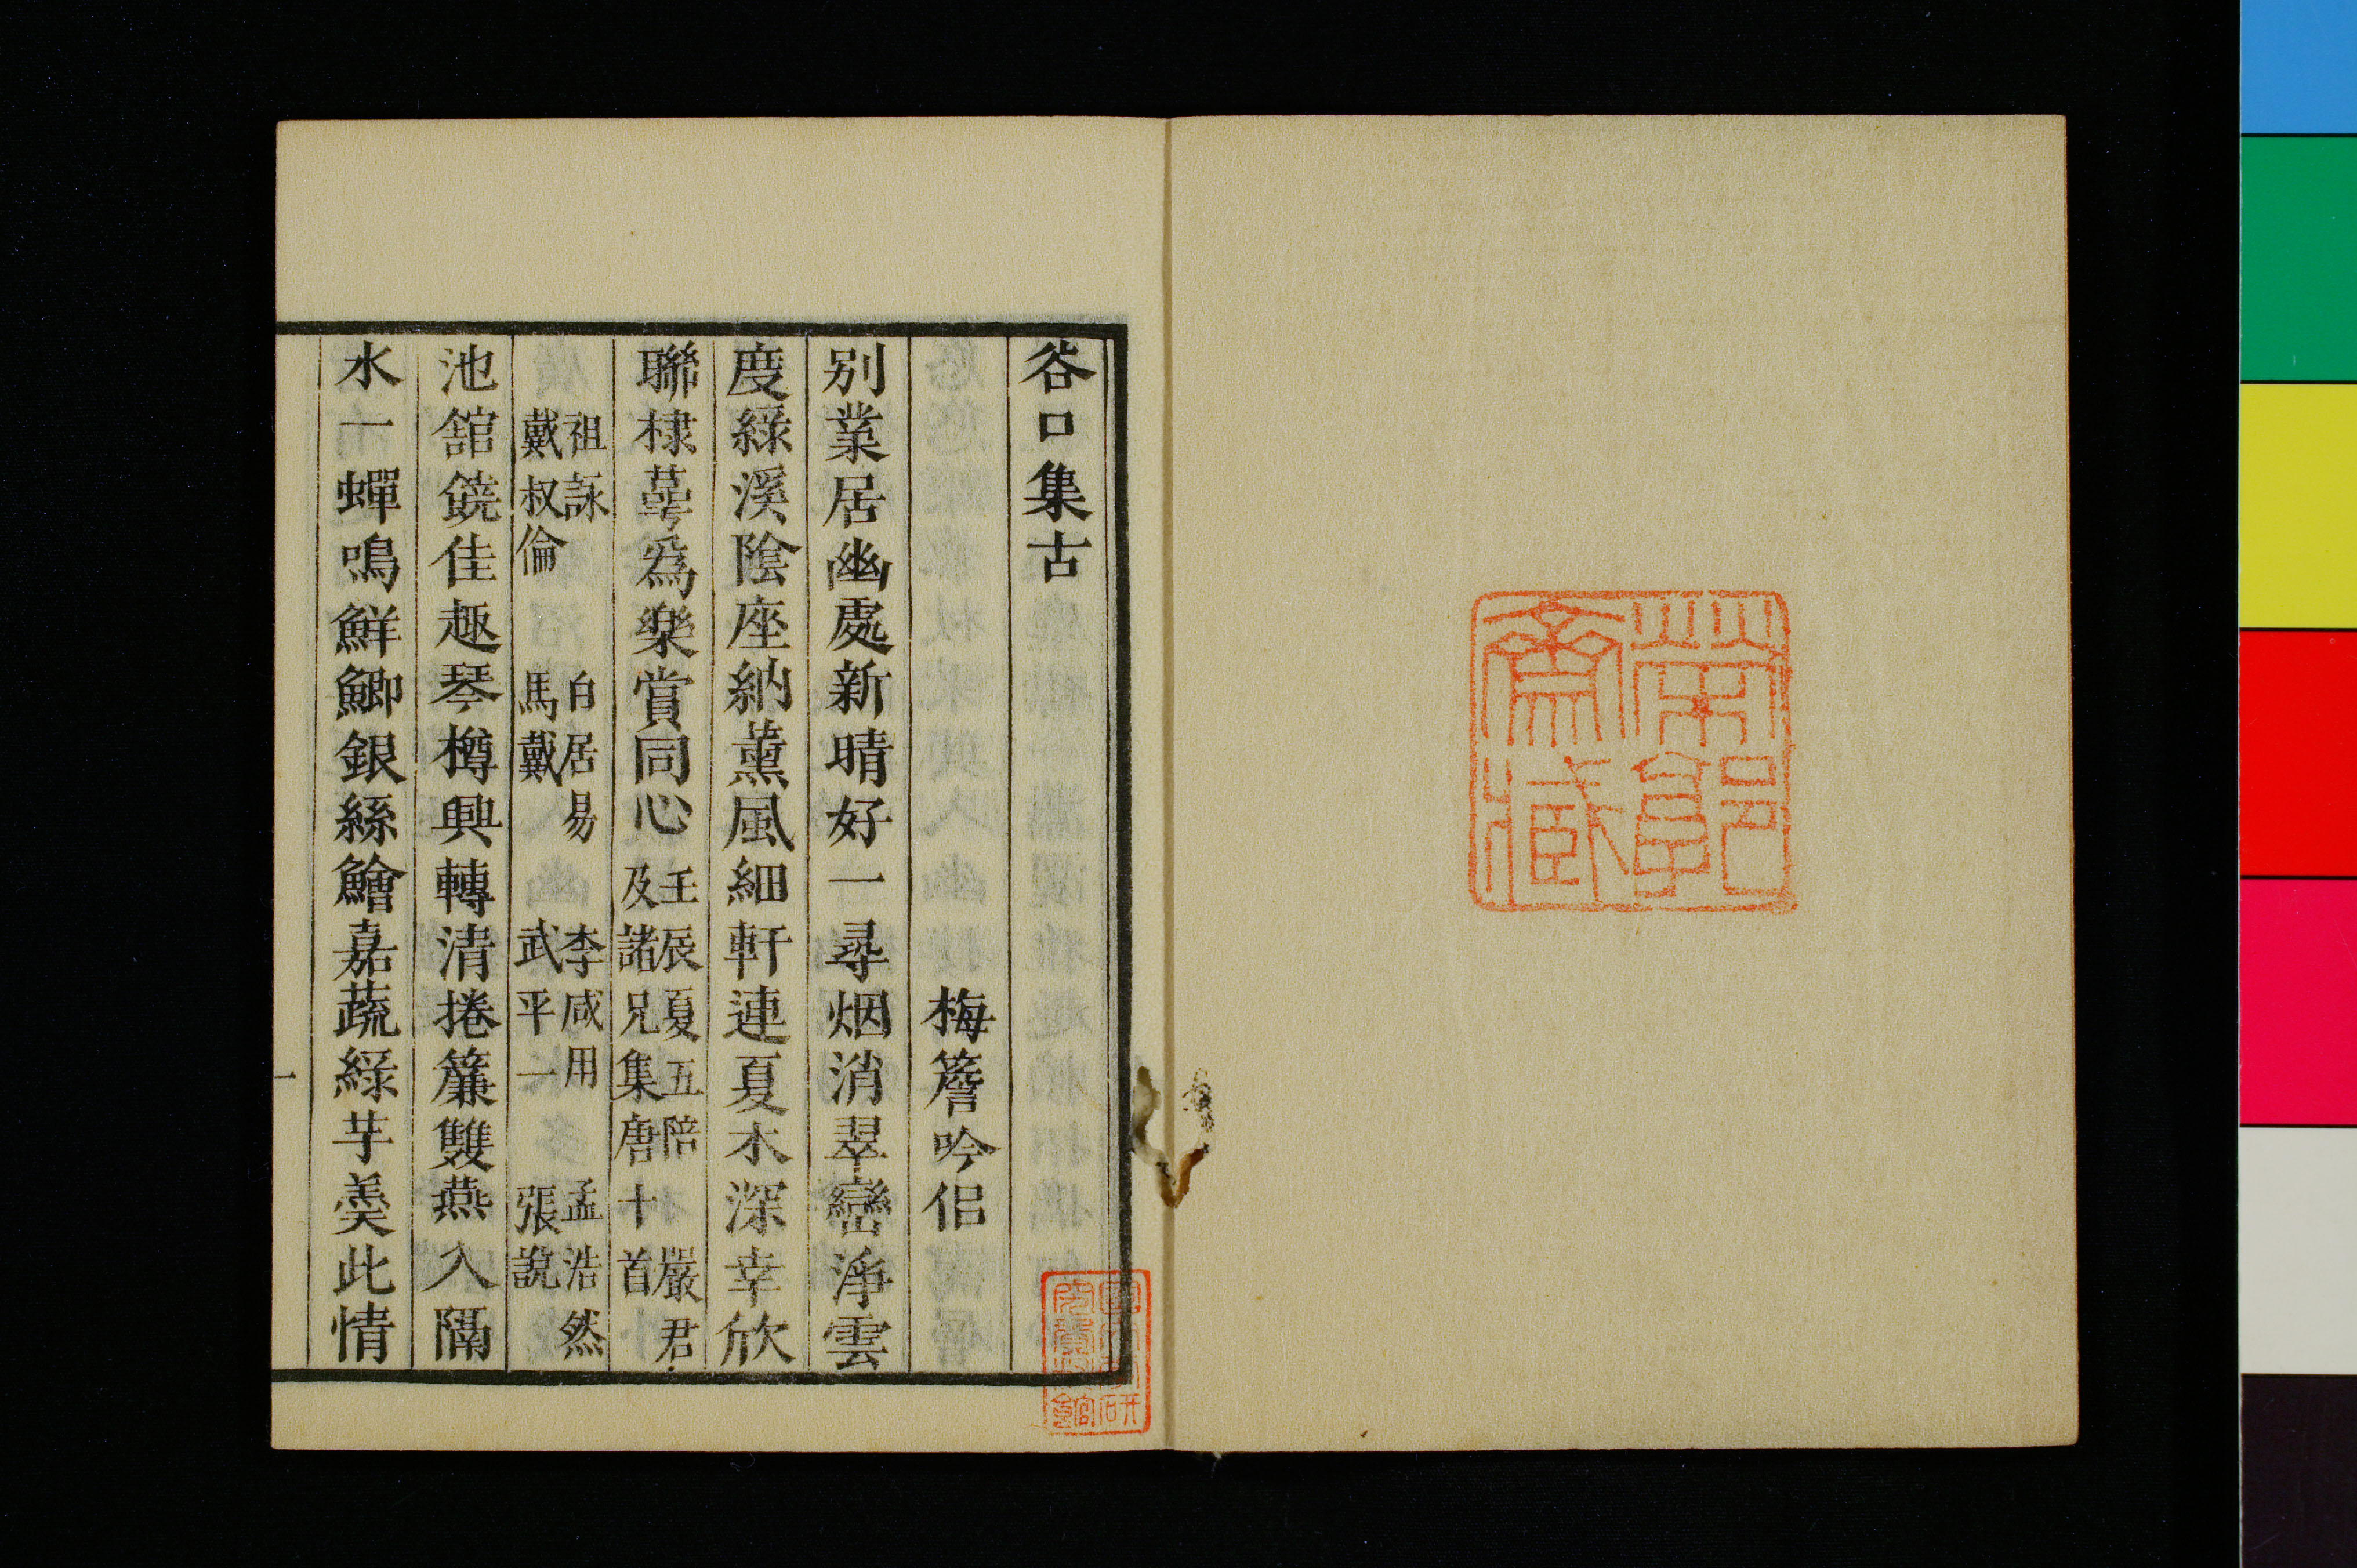 谷口集古
梅簷吟侶
別業居幽處新晴好一尋烟消翠巒淨雲
度綠溪陰座納薰風細軒連夏木深幸欣
聯棣萼爲樂賞同心
壬辰夏五陪 嚴君
及諸兄集唐十首
祖詠 白居易 李咸用 孟浩然
戴叔倫 馬戴 武平一 張說
池館饒佳趣琴樽興轉清捲簾雙燕入隔
水一蟬鳴鮮鯽銀絲鱠嘉蔬綠芋羹此情
一